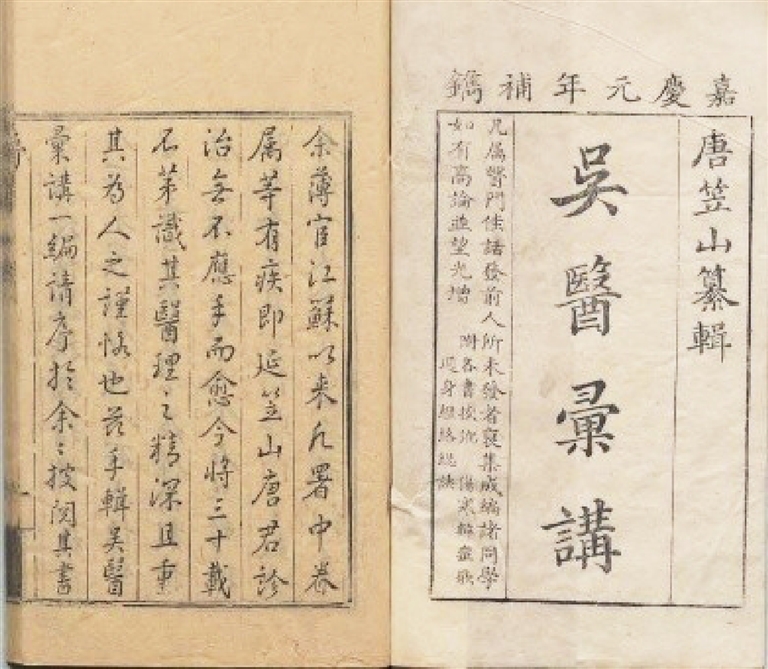 嘉慶元年補鐫
唐笠山纂輯
吳醫彙講
凡屬醫門佳話發前人所未發者裒集成編諸同學
如有高論並望光增
附各書按𠜇 傷寒雜症歌
週身經絡總訣
余薄官江蘇以来凡署中眷
属等有疾即延笠山唐君診
治無不應手而愈今將三十載
不苐識其醫理之精深且重
其為人之謹恪也茲手輯吳醫
彙講一編請序於余〻披閱其書